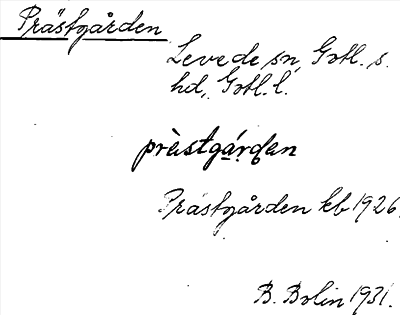 Prästgården
Levede sn, Gotl. s.
hd, Gotl. l.
prä̀stgárden
Prästgården kb 1926.
B. Bolin 1931.